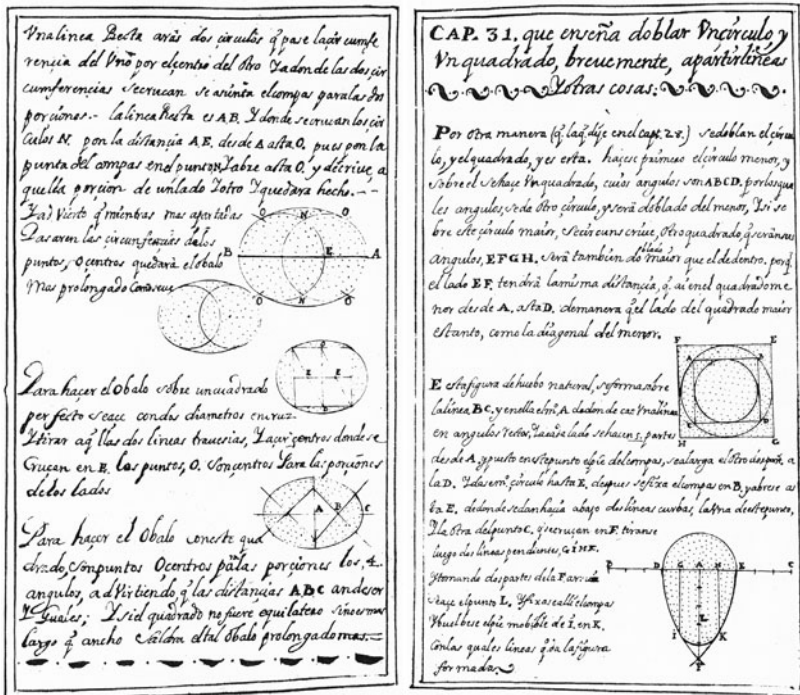 Vna linea Recta arás dos circulos q̃ pase la circumfe
rençia del Vno por el çentro del otro Y adonde las dos çir
cumferencias secrucan se asiẽnta el compas para las dos
porçiones.- la linea Resta es AB, Y donde se crucan los çir
culos N, pon la distançia A E, desde A asta O, pues pon la
punta del compas en el punto N, Y abre asta O, y descrive, a
quella porçion de un lado Y otro Y quedara hecho. - -
Y ad Vierto q̃ mientras mas apartadas
Pasaren las circunferençias de los
puntos, o centros quedará el obalo
Mas prolongado Como se ve
O N O
B E A
O N O
Para haçer el Obalo sobre un cuadrado
perfecto se açe con dos diametros en cruz
Y tirar aq̃llas dos lineas
Crucan en E. los puntos, O. son centros Para las porçiones
de los lados
E E
A B C
Para haçer el Obalo con este qua
drado, son puntos O centros pa las porçiones los, 4.
angulos, ad Virtiendo q̃ las distançias A B C an de ser
Y Guales; Y si el quadrado no fuere equilatero sino es mas
largo q̃ ancho Saldra el tal obalo prolongado mas.
CAP. 31. que enseña doblar Vn çírculo, y
Vn quadrado, brevemente, a partir líneas
Y otras cosas:
Por otra manera (q̃ la q̃ dije en el Cap. 28.) se doblan el çircu
lo, y el quadrado, y es esta. haçese primero el çirculo menor, y
sobre el se haçe Vn quadrado, cuios angulos son ABCD. por los qua
les angulos, se da otro çirculo, y será doblado del menor, Y si so
bre este çirculo maior, se çircunscrive, Otro quadrado, q̃ serán sus
angulos, E F G H. Será tambien doblado maior que el de dentro. porq̃
el lado E F, tendrá la misma distançia, q̃ ai en el quadrado me
nor desde A. asta D. de manera q̃ el lado del quadrado maior
es tanto, como la diagonal del menor.
F E
A B
C D
H G
E esta figura de huebo natural, se forma sobre
la linea B C. y en ella el A. de donde cae Vna linea
en angulos rectos, Y a cada lado se haçen 5. partes
desde A, y puesto en este punto el pie del compas, se alarga el otro despues a
la D. Y da semi çirculo hasta E, despues se fixa el compas en B, y abrese as
ta E. de donde se dan haçia abajo dos lineas curbas, la Vna de este punto,
Y la otra del punto C. q̃ se cruçan en F. tiranse
luego dos lineas pendientes, G I H K.
Y tomando dos partes de la F arriba
se açe el punto L. Y fixase alli el compas
Y buelbese el pie mobible de I. en K.
Con las quales lineas q̃da la figura
formada.
B D G A H E C
L
I K
F